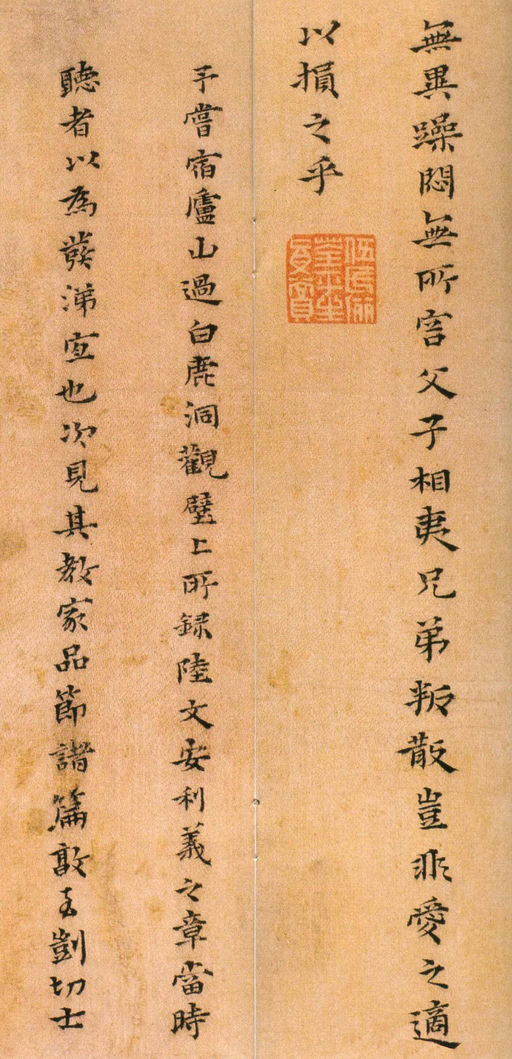 無異躁悶無所容父子相夷兄弟叛散豈非愛之適
以損之乎
予嘗宿廬山過白鹿洞觀壁上所録陸文安利義之章當時
聽者以為發涕宜也次見其教家品節諸篇敦古剴切士